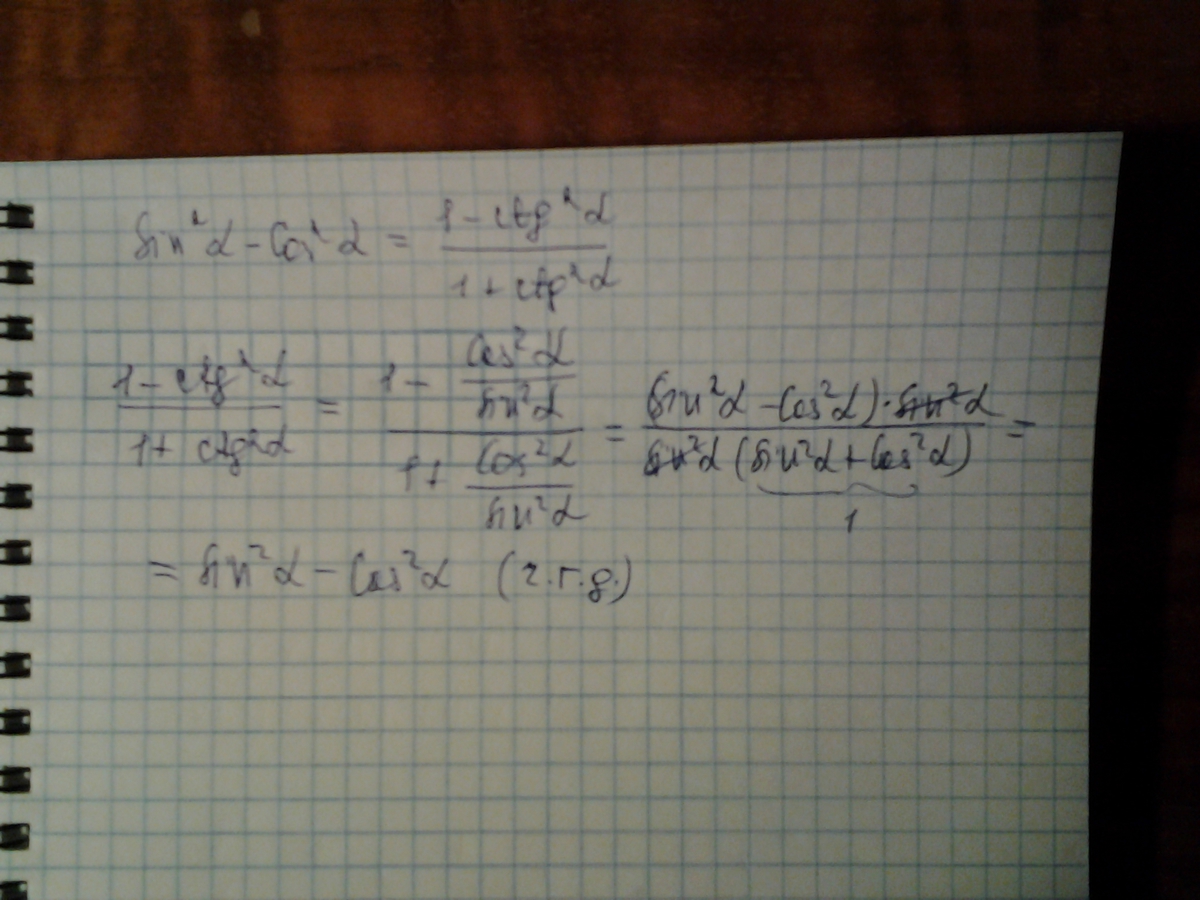 sin²α - cos²α = (1 - ctg²α) / (1 + ctg²α)
(1 - ctg²α) / (1 + ctg²α) = (1 - cos²α / sin²α) / (1 + cos²α / sin²α) = ((sin²α - cos²α) · sin²α) / (sin²α (sin²α + cos²α)) =
1
= sin²α - cos²α (ч.т.д.)